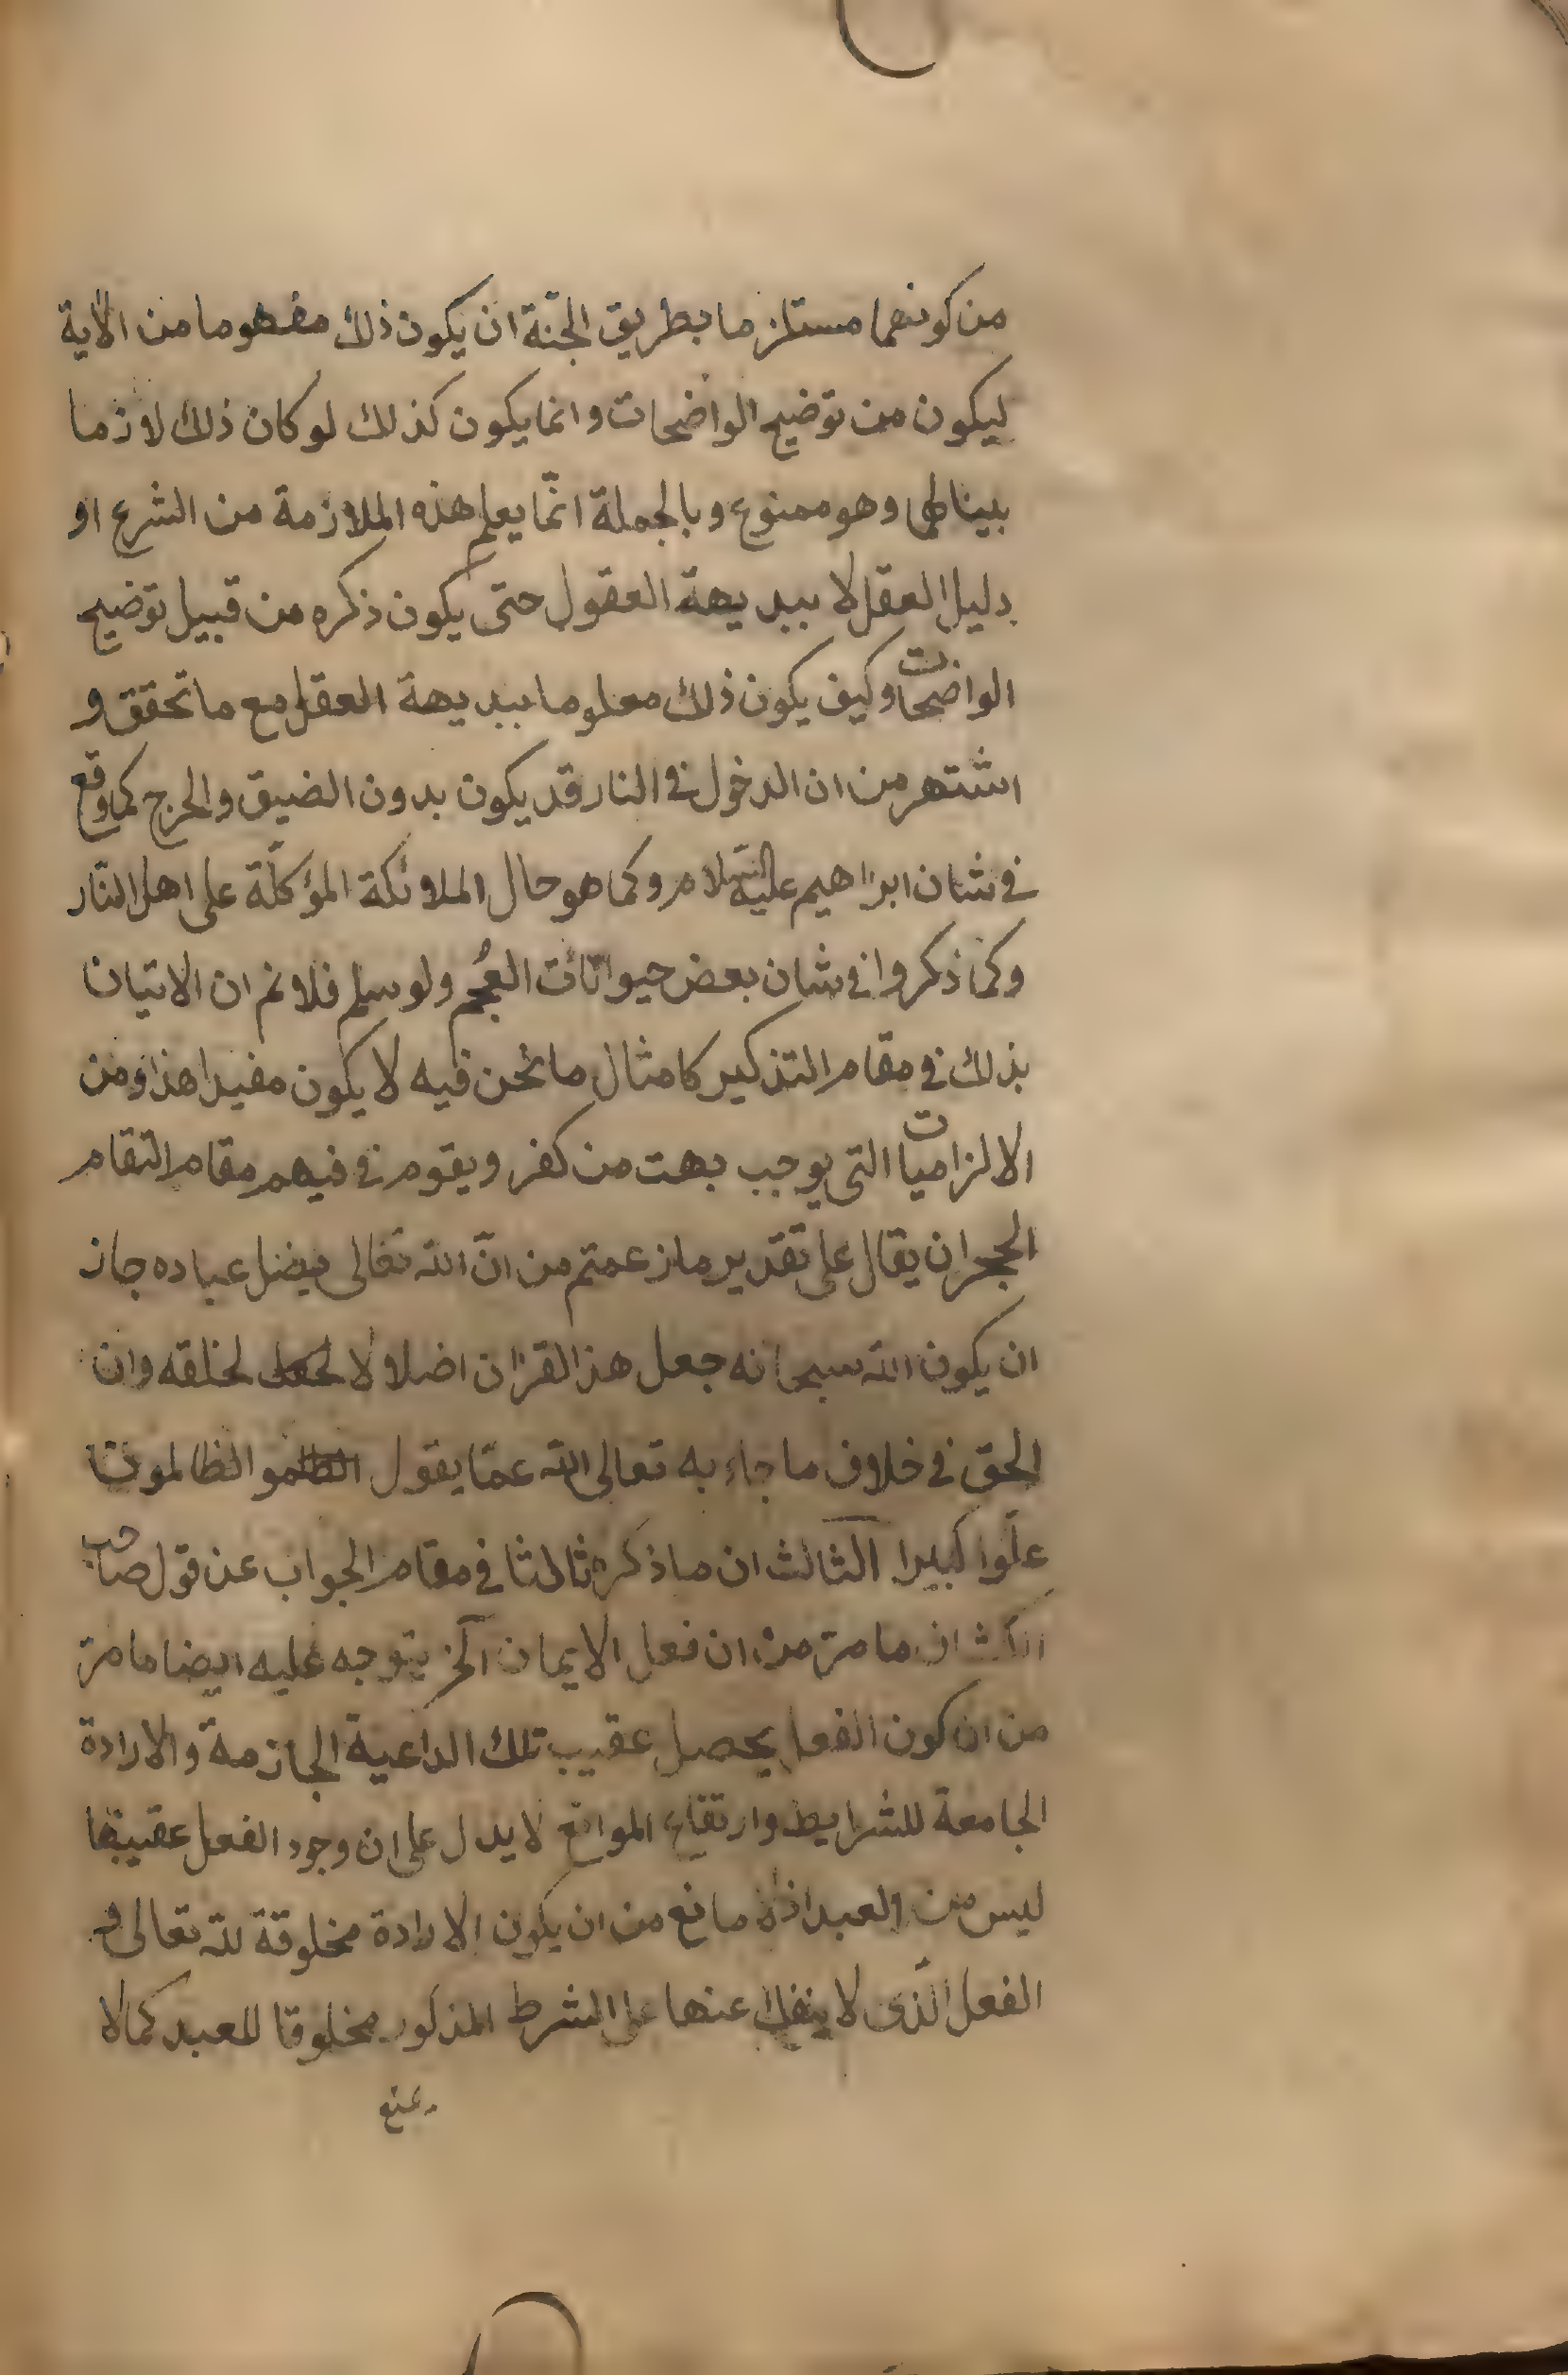 من كونهما مستلزما بطريق الجنّة ان يكون ذلك مفهوما من الآية
ليكون من توضيح الواضحات وانما يكون كذلك لو كان ذلك لازما
بينا لها وهو ممنوع وبالجملة انّما يعلم هذه الملازمة من الشرع او
دليل العقل لا ببديهة العقول حتى يكون ذكره من قبيل توضيح
الواضحات وكيف يكون ذلك معلوما ببديهة العقل مع ما تحقق و
اشتهر من ان الدخول في النار قد يكون بدون الضيق والحرج كما وقع
في شان ابراهيم عليه السّلام وكما هو حال الملائكة المؤكلّة على اهل النّار
وكما ذكروا في شان بعض حيوانات العُجم ولو سلم فلا نم ان الاتيان
بذلك في مقام التذكير كامثال ما نحن فيه لا يكون مفيدا هذا ومن
الالزاميات التى يوجب بهت من كفر ويقوم في فيهم مقام التقام
الحجر ان يقال على تقدير ما زعمتم من انّ الله تعالى يضل عباده جاز
ان يكون الله سبحانه جعل هذا القرآن اضلالا لخلقه وان
الحق في خلاف ما جاء به تعالى الله عمّا يقول الظالمون
علّوا كبيرا الثالث ان ما ذكره ثالثا في مقام الجواب عن قول صاحب
الكشاف ما مرّ من ان فعل الايمان آلخ يتوجه عليه ايضا ما مرّ
من ان كون الفعل يحصل عقيب تلك الداعية الجازمة والارادة
الجامعة للشرايط وارتفاع الموانع لا يدل على ان وجود الفعل عقيبها
ليس من العبد اذ لا مانع من ان يكون الارادة مخلوقة لله تعالى و
الفعل الّذى لا ينفك عنها على الشرط المذكور مخلوقا للعبد كما لا
يمنع